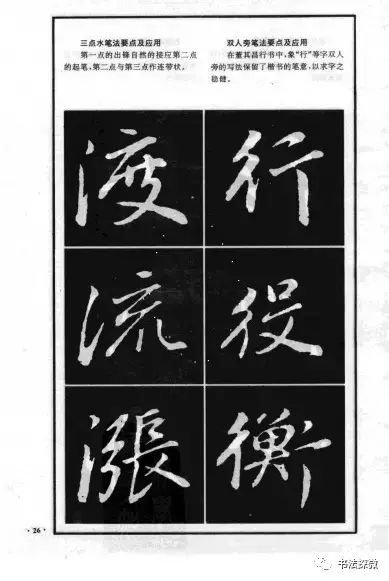 三点水笔法要点及应用
第一点的出锋自然的接应第二点
的起笔,第二点与第三点作连带状。
双人旁笔法要点及应用
在董其昌行书中,象“行”等字双人
旁的写法保留了楷书的笔意,以求字之
稳健。
渡 行
流 役
漲 衡
·26·
书法探微